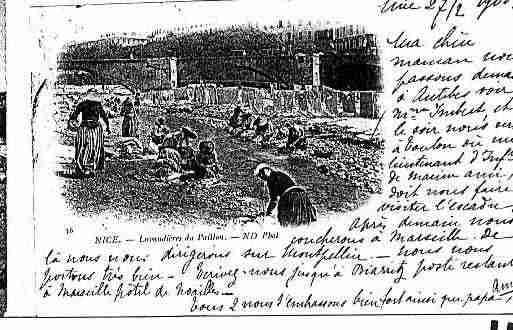 Nice 27/2
Ma chère
maman nous
passons demain
à Antibes voir
Mme Imbert et
le soir nous
à toulon où un
lieutenant d'Inf
de marine ami,
doit nous faire
visiter l'escadre,
Après demain nous
16
NICE. — Lavandières du Paillon. — ND Phot
coucherons à Marseille de
là nous nous dirigerons sur Montpellier — nous nous
portons très bien — Ecrivez-nous jusqu'à Biarritz poste restante
à Marseille hôtel de Noailles —
Tous 2 nous t'embrassons bien fort ainsi que papa,